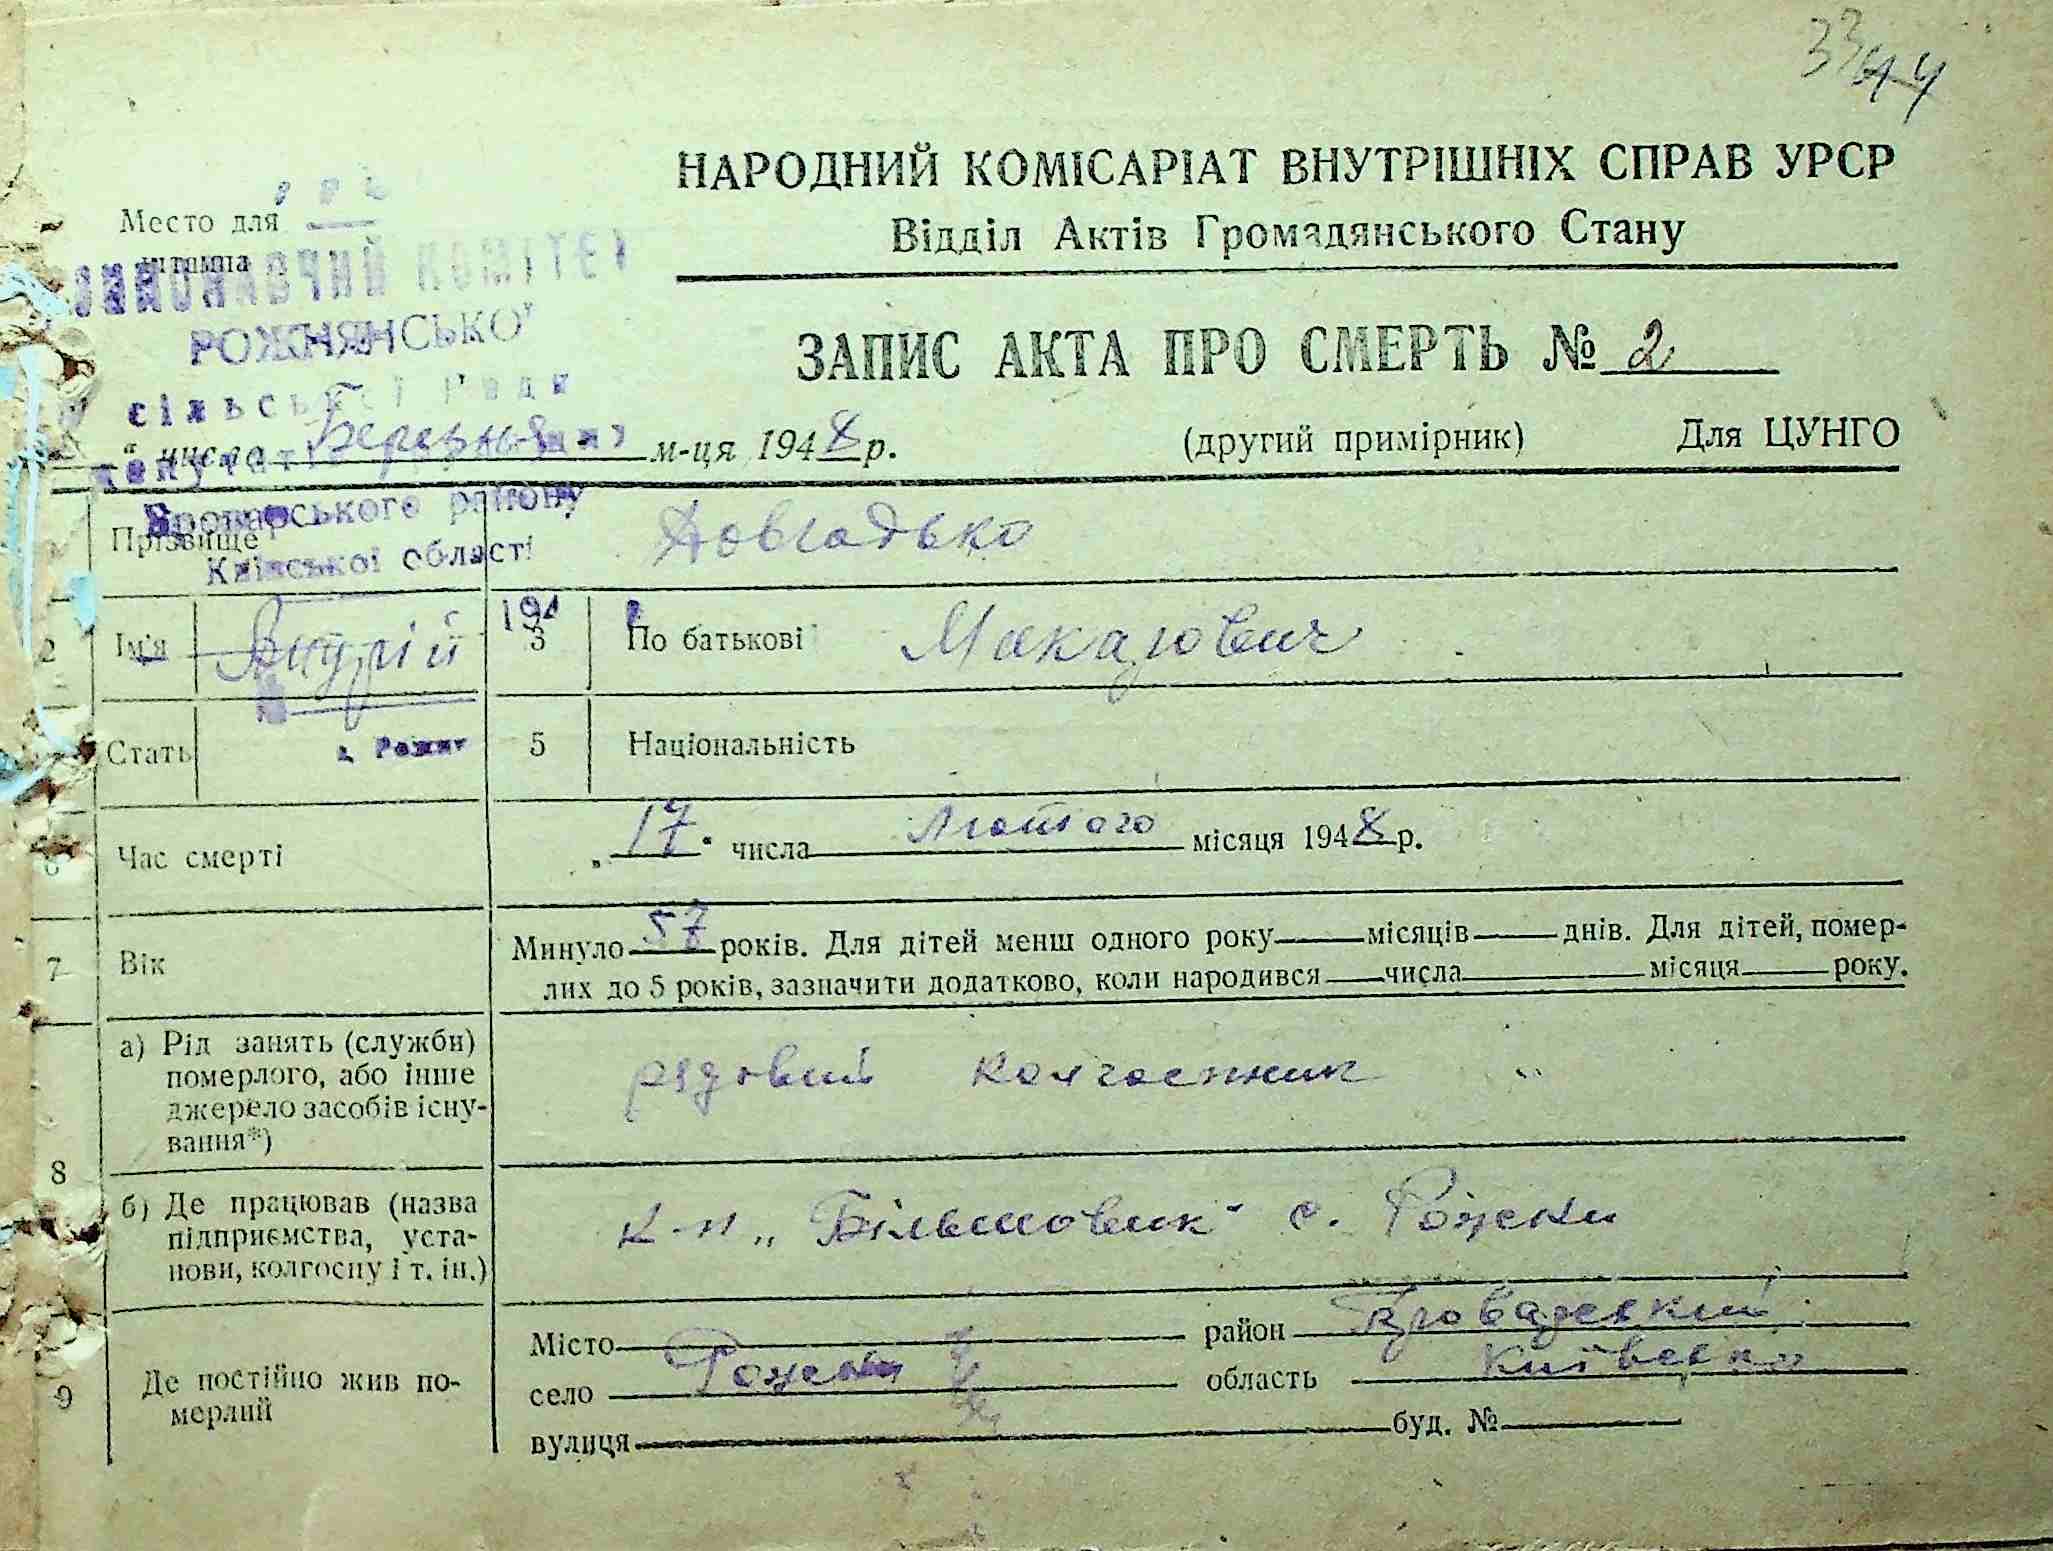 33
44
НАРОДНИЙ КОМІСАРІАТ ВНУТРІШНІХ СПРАВ УРСР
Відділ Актів Громадянського Стану
Место для
штампа
УРСР
ВИКОНАВЧИЙ КОМІТЕТ
РОЖНЯНСЬКОЇ
сільської Ради
Броварського району
Київської області
194
с. Рожни
ЗАПИС АКТА ПРО СМЕРТЬ № 2
" числа Березня м-ця 1948 р.
(другий примірник) Для ЦУНГО
Прізвище Довгодько
2 Ім'я Андрій 3 По батькові Макарович
Стать 5 Національність
6 Час смерті „17" числа Лютого місяця 1948 р.
7 Вік Минуло 57 років. Для дітей менш одного року місяців днів. Для дітей, помер-
лих до 5 років, зазначити додатково, коли народився числа місяця року.
8 а) Рід занять (служби)
померлого, або інше
джерело засобів існу-
вання*)
рядовий колгоспник
б) Де працював (назва
підприємства, уста-
нови, колгоспу і т. ін.)
к-п „Більшовик" с. Рожни
9 Де постійно жив по-
мерлий
Місто район Броварський
село Рожни область Київська
вулиця буд. №